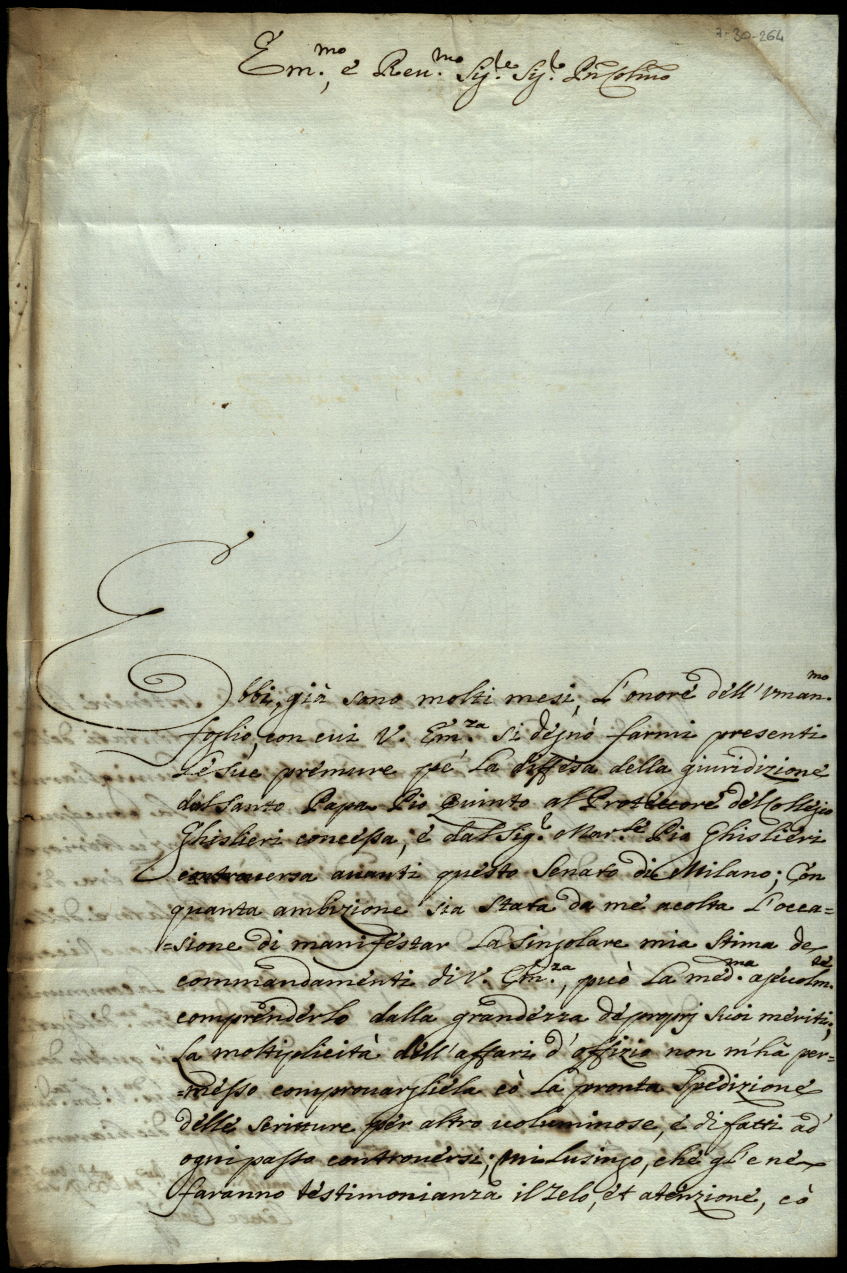 7-30-264
Em.mo, e Reu.mo Sig.re Sig.re Pñ Colmo
Ebbi, già sono molti mesi, L'onore dell'Vman.mo
foglio, con cui V. Em.za si degnò farmi presenti
Le sue premure pe' La diffesa della giuridizione
dal Santo Papa Pio Quinto al Protettore del Collegio
Ghislieri concessa, e dal Sig.r Mar.se Pio Ghislieri
controversa auanti questo Senato di Milano; Con
quanta ambizione sia stata da me acolta L'occa=
=sione di manifestar La singolare mia stima de
commandamenti di V. Em.za, può La med.ma ageuolm.te
comprenderlo dalla grandezza de proprj suoi meriti;
La moltiplicità dell'affari d'offizio non m'hà per=
=messo comprouargliela cò La pronta Spedizione
delle Scritture per altro uoluminose, e di fatti ad
ogni passo controuersi; mi lusingo, che gl'e ne
faranno testimonianza il zelo, et atenzione, cò